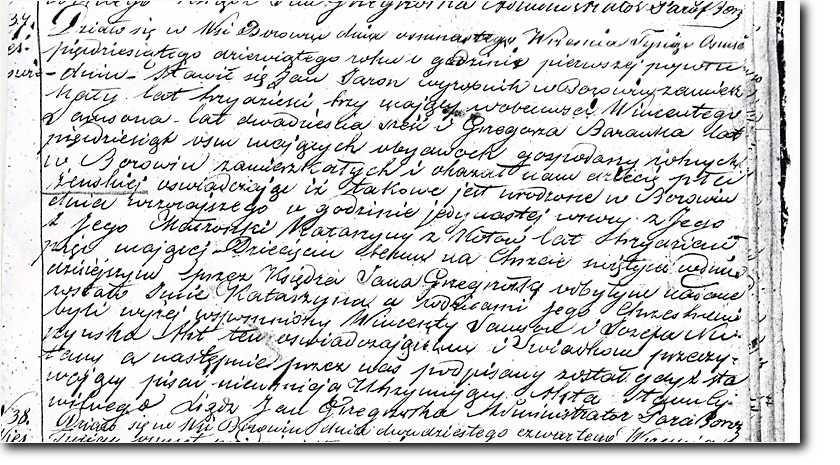 Xiądz Jan Grzegrułka Administrator Paraf Borz
37. Działo się w Wsi Borowiu dnia ośmnastego Września Tysiąc Ośmset
pięćdziesiątego dziewiątego roku o godzinie pierwszej popołu-
-dniu- Stawił się Jan Saron wyrobnik w Borowiu zamiesz-
kały lat trzydzieści trzy mający w obecności Wincentego
Samsona lat dwadzieścia sześć i Grzegorza Baranka lat
pięćdziesiąt ośm mających obydwóch gospodarzy rolnych
w Borowiu zamieszkałych i okazał nam dziecię płci
żeńskiej oświadczając iż takowe jest urodzone w Borowiu
dnia wczorajszego o godzinie jedynastej wnocy z Jego
z Jego Małżonki Katarzyny z Kotów lat trzydzieści
pięć mającej Dziecięciu temu na Chrzcie świętym w dniu
dzisiejszym przez Księdza Jana Grzegrułkę odbytym nadane
zostało Imie Katarzyna a rodzicami Jego Chrzestnemi
byli wyżej wspomniony Wincenty Samson i Józefa
Akt ten oświadczającemu i Świadkom przeczy-
tany a następnie przez nas podpisany został gdyż sta
wający pisać nieumieją Utrzymujący Akta Stanu Cy-
wilnego Xiądz Jan Grzegrułka Administrator Para Borz
38. Działo się w Wsi Borowiu dnia dwudziestego czwartego Września